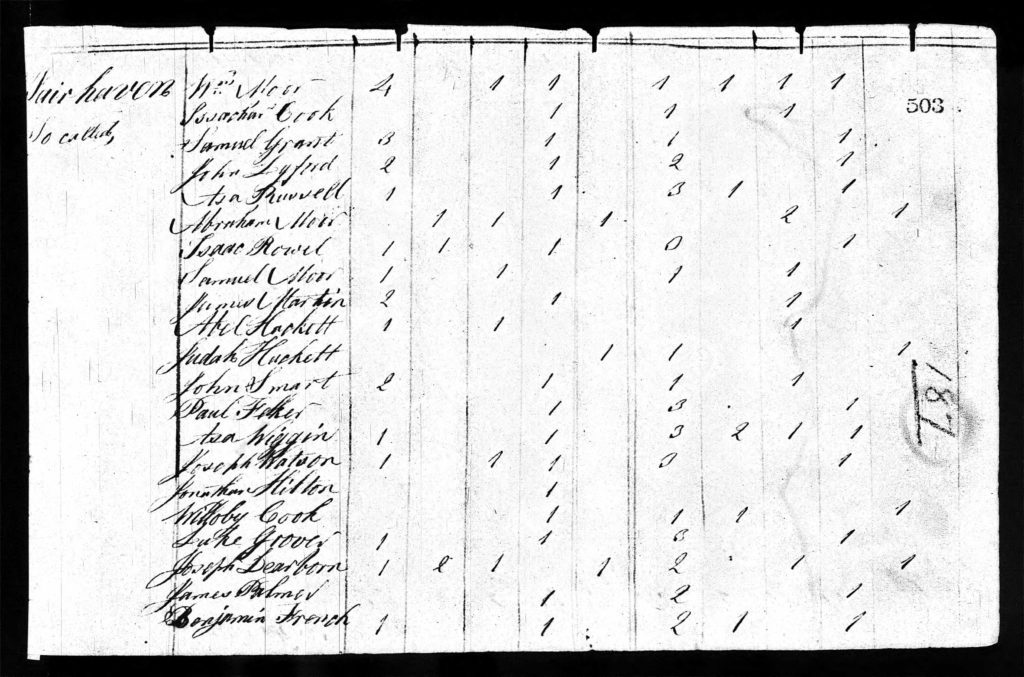 Fairhaven Wm Moor 4 1 1 1 1 1 1
Issachar Cook 1 1 1
503
So called, Samuel Grant 3 1 1 1
John Lyford 2 1 2 1
Asa Russell 1 1 3 1 1
Abraham Moor 1 1 1 2 1
Isaac Rowel 1 1 1 3 1
Samuel Moor 1 1 1 1
James Martin 2 1 1
Abel Hackett 1 1 1
Judah Huckett 1 1 1
John Smart 2 1 1 1
Paul 1 3 1
Asa Wiggin 1 1 3 2 1 1
Joseph Watson 1 1 1 3 1
Jonathan Hilton 1
Willoby Cook 1 1 1 1
Luke Grover 1 1 3 1
Joseph Dearborn 1 2 1 1 2 1 1
James Palmer 1 2 1
Benjamin French 1 1 2 1 1
187